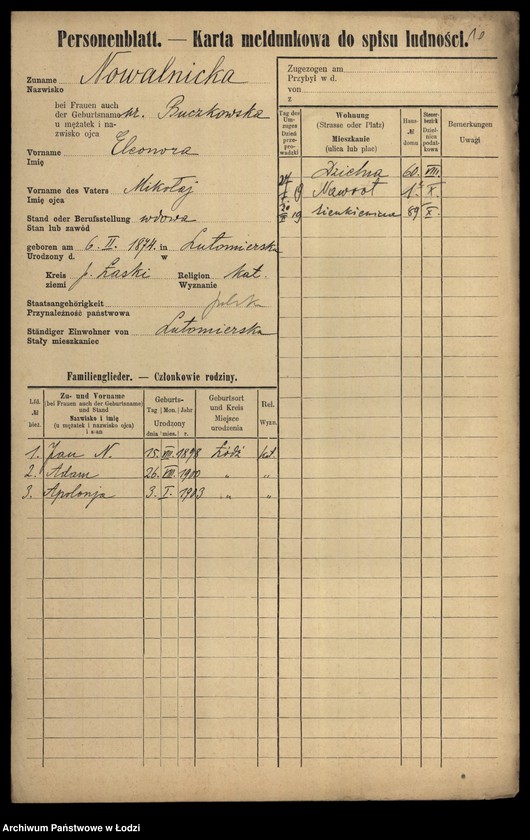 Personenblatt. — Karta meldunkowa do spisu ludności.
Zuname Nowalnicka
Nazwisko
bei Frauen auch
der Geburtsname Buczkowska
u mężatek i na-
zwisko ojca
Vorname Eleonora
Imię
Vorname des Vaters Mikołaj
Imię ojca
Stand oder Berufsstellung wdowa
Stan lub zawód
geboren am 6. II. 1874. in Lutomiersku
Urodzony d. w
Kreis p. Łaski Religion kat.
ziemi Wyznanie
Staatsangehörigkeit polska
Przynależność państwowa
Ständiger Einwohner von Lutomierska
Stały mieszkaniec
Familienglieder. — Członkowie rodziny.
Lfd. № bież.
Zu- und Vorname
(bei Frauen auch der Geburtsname)
und Stand
Nazwisko i imię
(u mężatek i nazwisko ojca)
i stan
Geburts-
Tag Mon. Jahr
Urodzony
dnia mies. r.
Geburtsort
und Kreis
Miejsce
urodzenia
Rel.
Wyzn.
1. Jan N. 15. VII. 1898 Łódź kat
2. Adam 26. VIII. 1900 " "
3. Apolonja 3. I. 1903 " "
Zugezogen am
Przybył w d.
von
z
Tag des Um-
zuges
Dzień
przepro-
wadzki
Wohnung
(Strasse oder Platz)
Mieszkanie
(ulica lub plac)
Haus-
№
domu
Steuer-
bezirk
Dziel-
nica
podat-
kowa
Bemerkungen
Uwagi
Dzielna 60. VIII.
19 Nawrot X.
19 Sienkiewicza 89 X.
Archiwum Państwowe w Łodzi